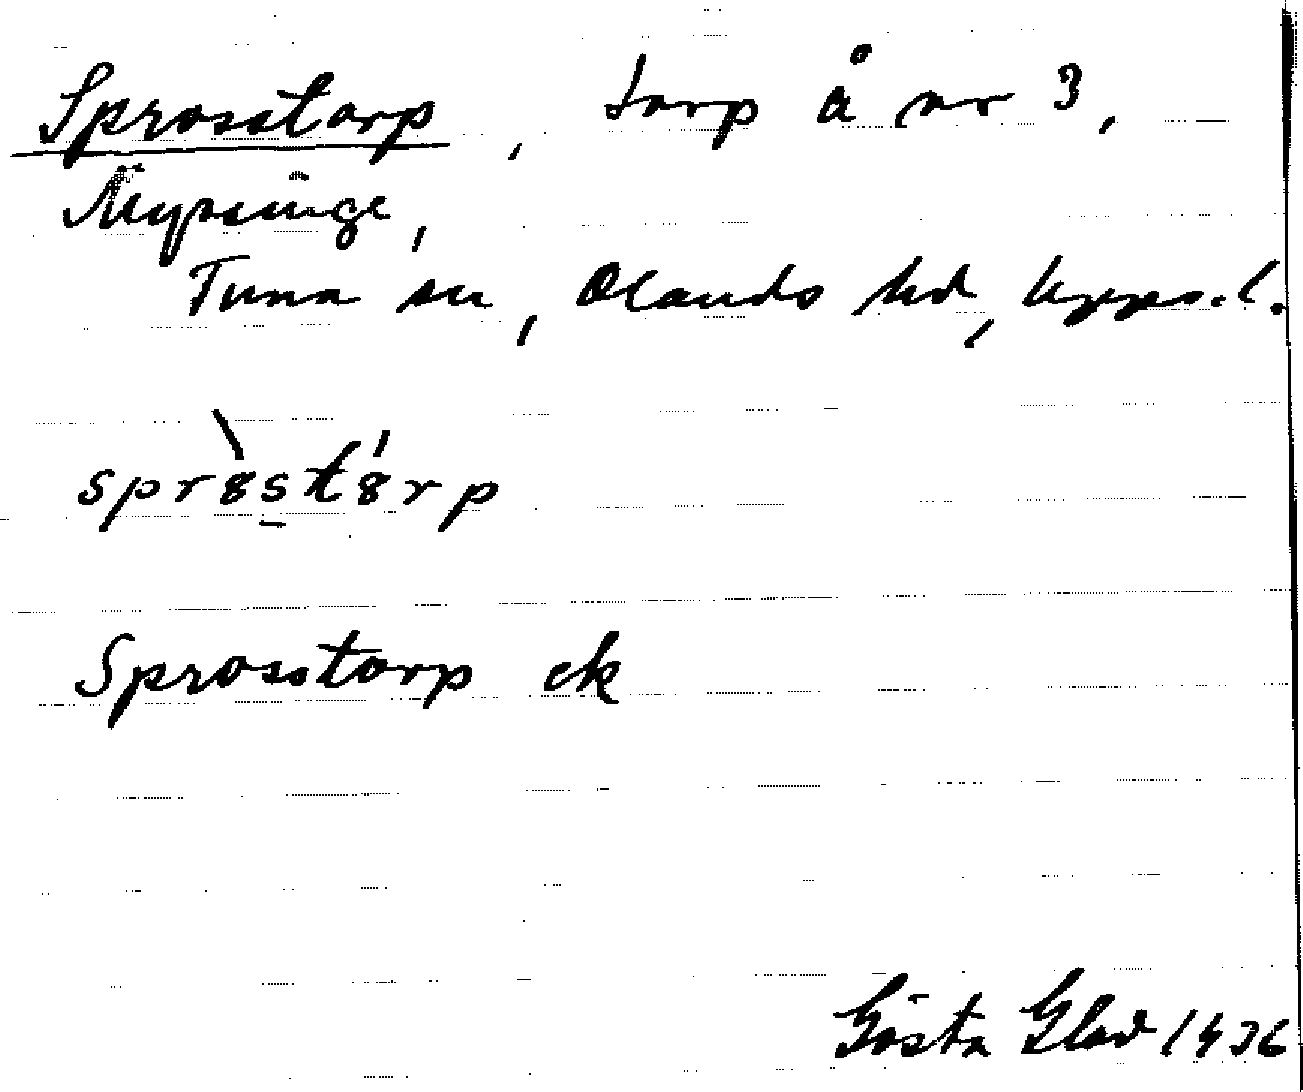 Sprosstorp, torp å nr 3,
Mypsinge,
Tuna sn, Olands hd, Upps. l.
spr8̀st8́rp
Sprosstorp ek
Gösta Glad 1936